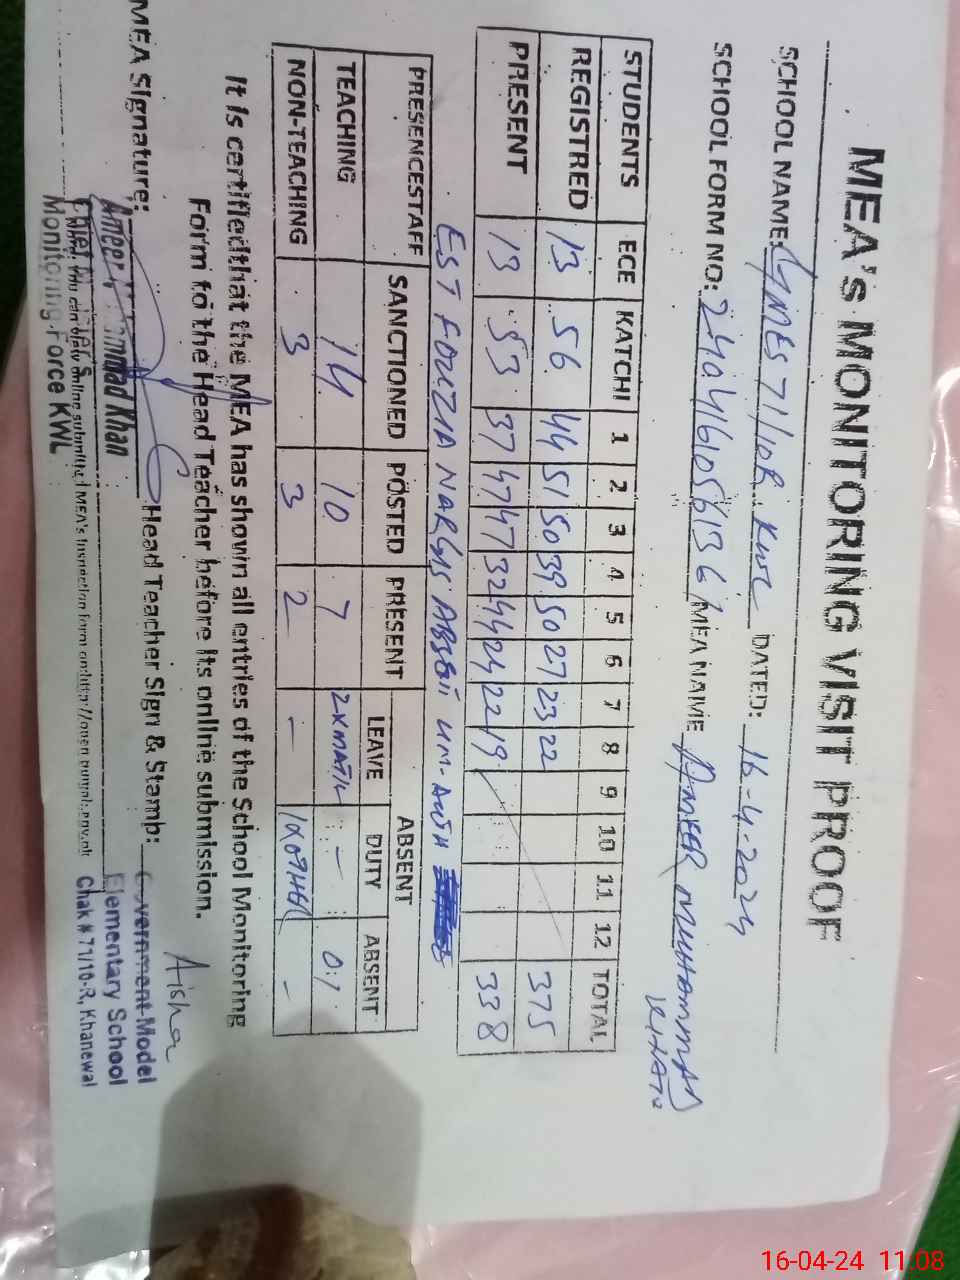 MEA's MONITORING VISIT PROOF
SCHOOL NAME: GMES 71/10R KWL DATED: 16-4-2024
SCHOOL FORM NO: MEA NAME AMEER MUHAMMAD KHAN
STUDENTS ECE KATCHI 1 2 3 4 5 6 7 8 9 10 11 12 TOTAL
REGISTRED 13 56 44 51 50 39 50 27 23 22 375
PRESENT 13 53 37 47 47 32 44 24 22 19 338
EST FOUZIA NARGIS ABSENT
PRESENCESTAFF SANCTIONED POSTED PRESENT ABSENT
LEAVE DUTY ABSENT
TEACHING 14 10 7 2xMATR - 01
NON-TEACHING 3 3 2 - 1xOTHER -
It is certifiedthat the MEA has shown all entries of the School Monitoring
Form to the Head Teacher before its online submission.
Aisha
MEA Signature: Head Teacher Sign & Stamp:
Ameer Muhammad Khan
Monitoring Force KWL
Government Model
Elementary School
Chak # 71/10-R, Khanewal
online submitted MEA's Inspection form on
16-04-24 11:08